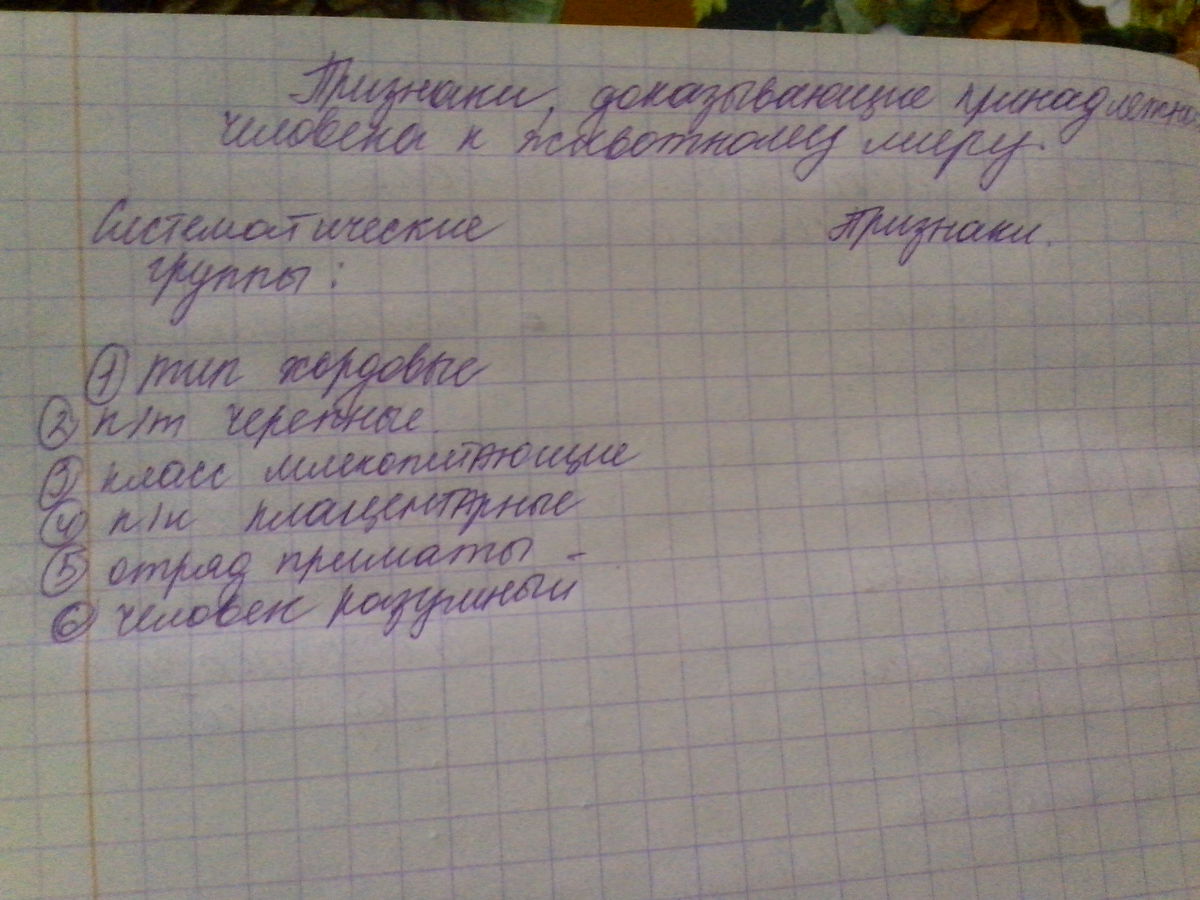 Признаки, доказывающие принадлежн
человека к животному миру.
Систематические Признаки.
группы:
1 тип хордовые
2 п/т черепные.
3 класс млекопитающие
4 п/к плацентарные
5 отряд приматы -
6 человек разумный